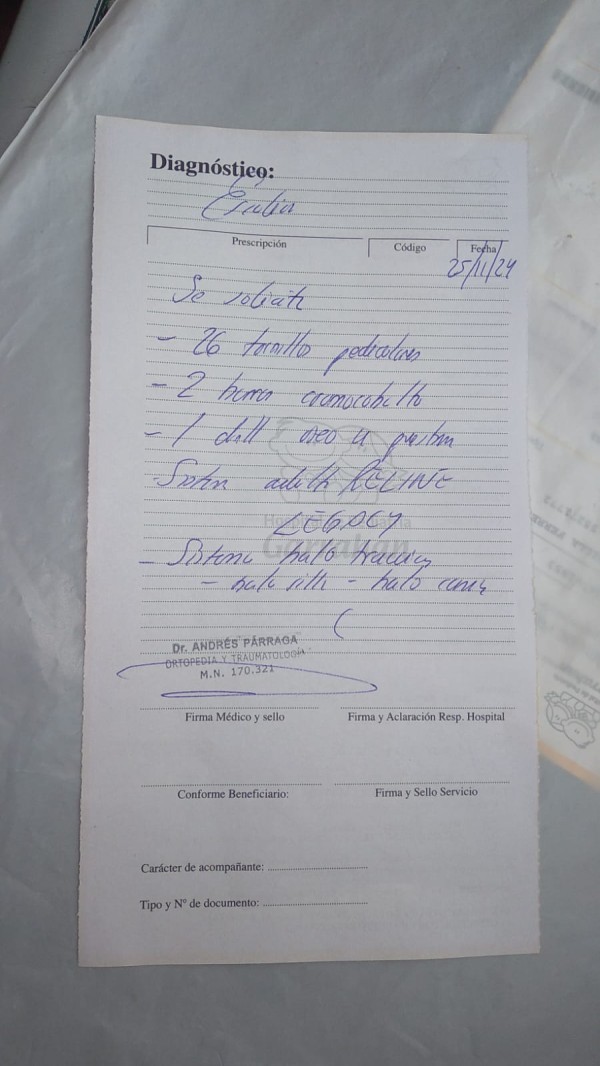 Diagnóstico:
Prescripción Código Fecha
25/11/24
Se solicita
- 26 tornillos pediculares
- 2 barras cromocobalto
- 1 drill oseo
- RELINE
LEGACY
- Sistema halo traccion
- halo silla - halo cama
Hospital
Garrahan
Dr. ANDRÉS PÁRRAGA
ORTOPEDIA Y TRAUMATOLOGÍA
M.N. 170.321
Firma Médico y sello Firma y Aclaración Resp. Hospital
Conforme Beneficiario: Firma y Sello Servicio
Carácter de acompañante:
Tipo y Nº de documento: